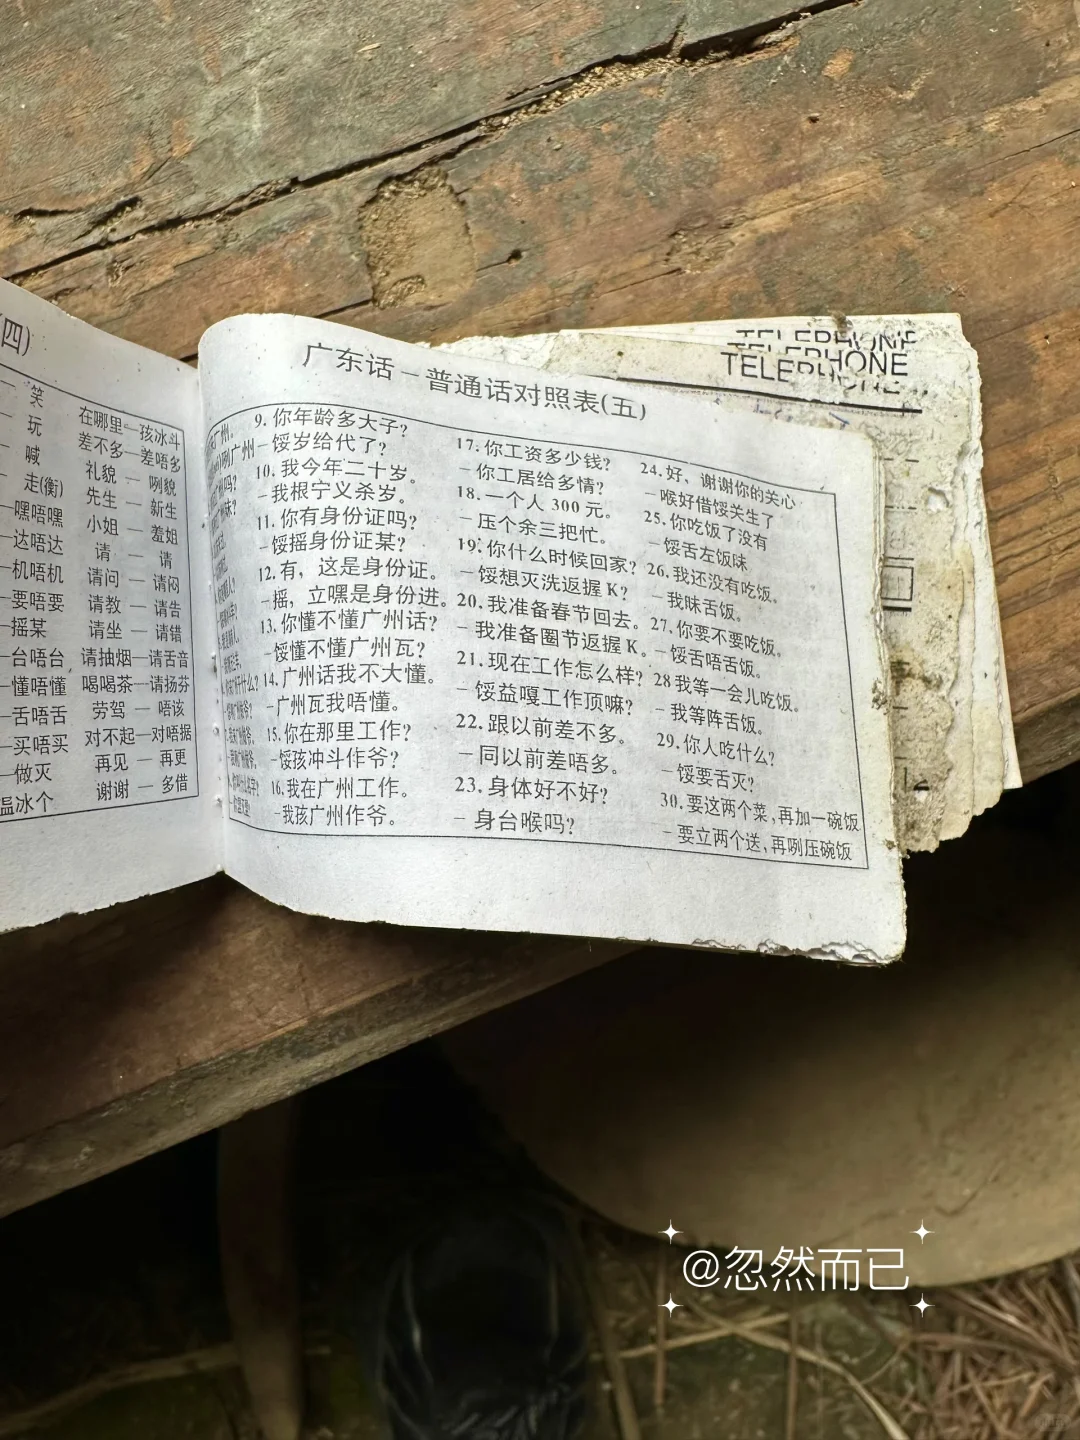 (四)
笑
玩
喊
走(衡)
—嘿唔嘿
—达唔达
—机唔机
—要唔要
—摇某
—台唔台
—懂唔懂
—舌唔舌
—买唔买
—做灭
温冰个
在哪里—孩冰斗
差不多—差唔多
礼貌 — 咧貌
先生 — 新生
小姐 — 羞姐
请 — 请
请问 — 请闷
请教 — 请告
请坐 — 请错
请抽烟—请舌音
喝喝茶—请扬芬
劳驾 — 唔该
对不起—对唔据
再见 — 再更
谢谢 — 多借
广东话—普通话对照表(五)
9.你年龄多大子?
—馁岁给代了?
10.我今年二十岁。
—我根宁义杀岁。
11.你有身份证吗?
—馁摇身份证某?
12.有，这是身份证。
—摇，立嘿是身份进。
13.你懂不懂广州话?
—馁懂不懂广州瓦?
14.广州话我不大懂。
—广州瓦我唔懂。
15.你在那里工作?
—馁孩冲斗作爷?
16.我在广州工作。
—我孩广州作爷。
17.你工资多少钱?
—你工居给多情?
18.一个人300元。
—压个余三把忙。
19.你什么时候回家?
—馁想灭洗返握K?
20.我准备春节回去。
—我准备圈节返握K。
21.现在工作怎么样?
—馁益嘎工作顶嘛?
22.跟以前差不多。
—同以前差唔多。
23.身体好不好?
—身台喉吗?
24.好，谢谢你的关心
—喉好借馁关生了
25.你吃饭了没有
—馁舌左饭味
26.我还没有吃饭。
—我昧舌饭。
27.你要不要吃饭。
—馁舌唔舌饭。
28我等一会儿吃饭。
—我等阵舌饭。
29.你人吃什么?
—馁要舌灭?
30.要这两个菜,再加一碗饭
—要立两个送,再咧压碗饭
TELEPHONE
TELEPHONE
TELEPHONE
@忽然而已